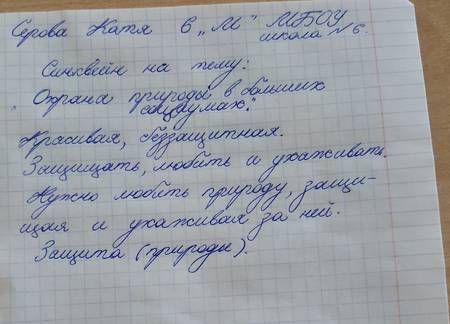 Серова Катя 6 "М" МБОУ
школа №6.
Синквейн на тему:
"Охрана природы в больших
социумах".
Красивая, беззащитная.
Защищать, любить и ухаживать.
Нужно любить природу, защи-
щая и ухаживая за ней.
Защита (природы).